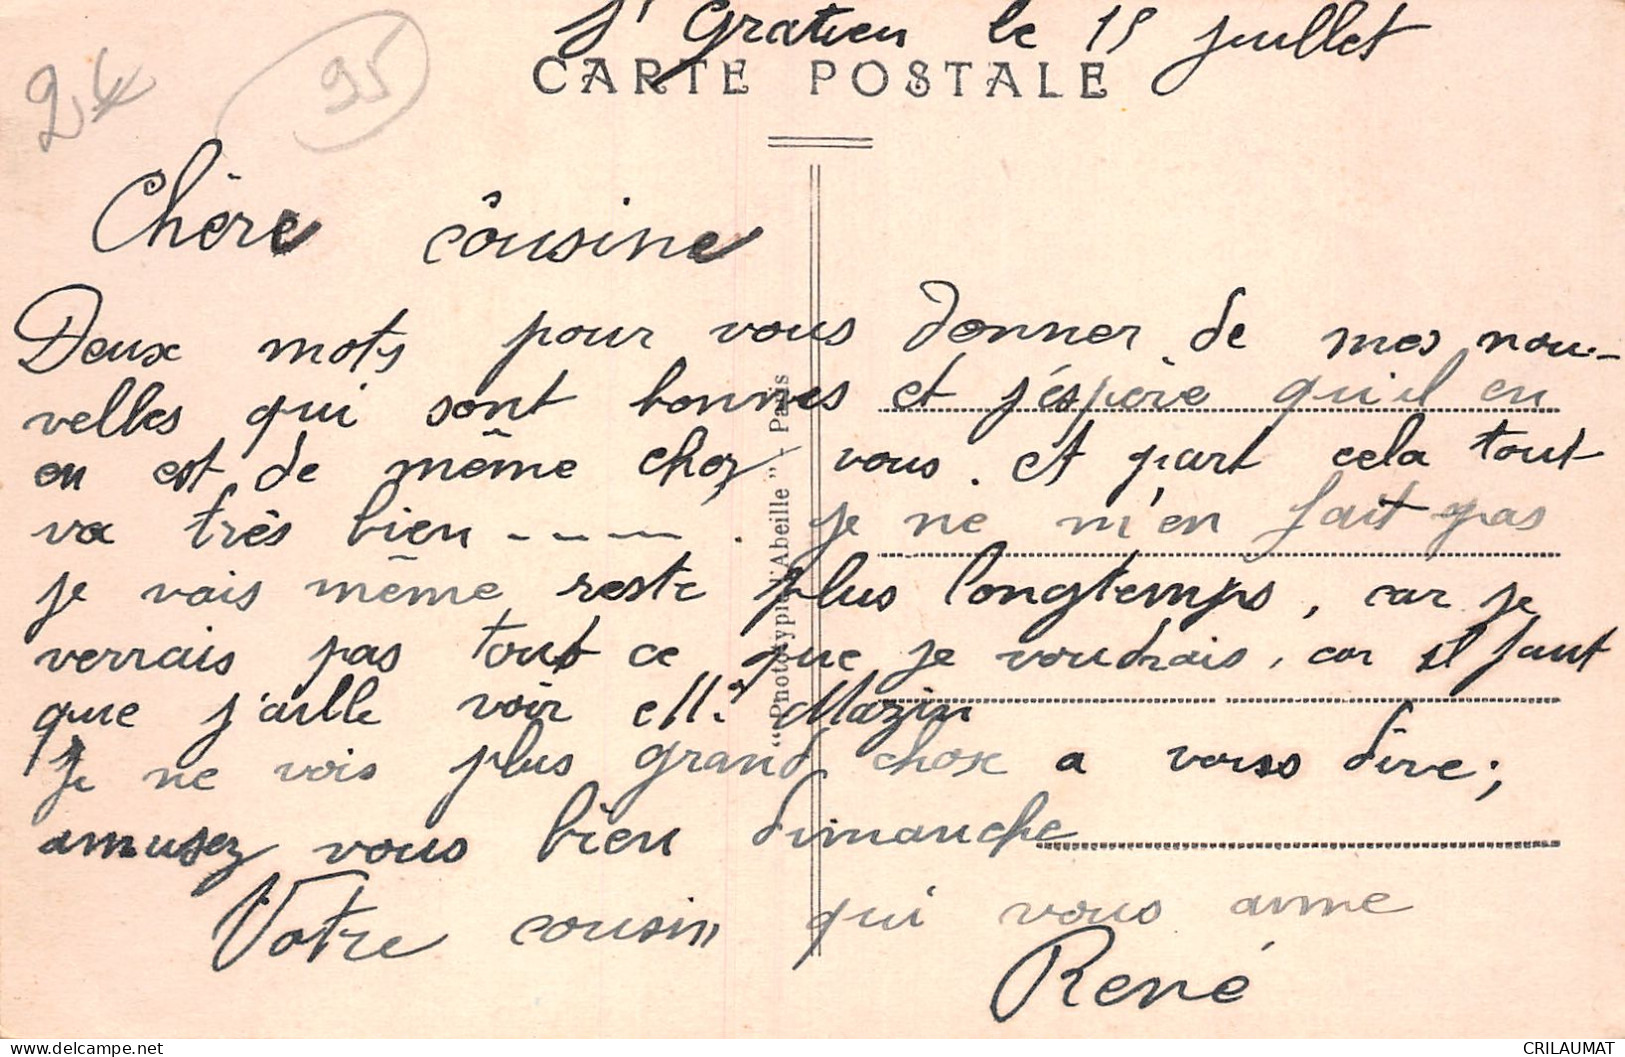 St Gratien le 15 juillet
95
CARTE POSTALE
Chère côusine
Deux mots pour vous donner de mes nou-
velles qui sont bonnes et j'éspère qu'il en
en est de même chez vous. et part cela tout
va très bien ----. je ne m'en fait pas
je vais même reste plus longtemps, car je
verrais pas tout ce que je voudrais, car il faut
que j'aille voir Mr Mazin
Je ne vois plus grand chose a vous dire;
amusez vous bien dimanche
Votre cousin qui vous aime
René
"Phototypie l'Abeille" - Paris
CRILAUMAT